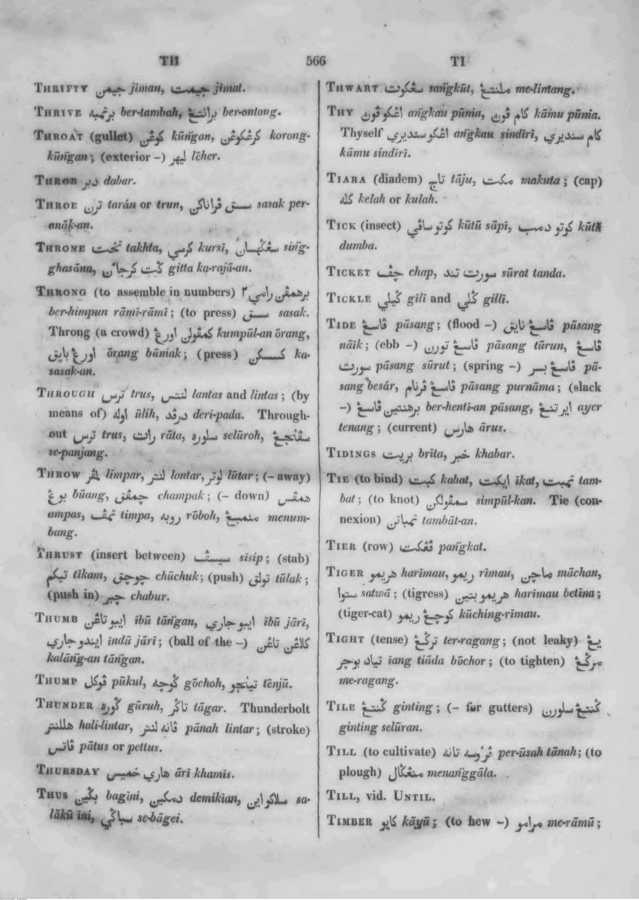 TH 566 TI
THRIFTY جيمن jiman, جيمت jimat.
THRIVE برتمبه ber-tambah, برانتڠ ber-ontong.
THROAT (gullet) كوڠن kūngan, كرڠكوڠن korong-
kūngan; (exterior -) ليهر lēher.
THROB دبر dabar.
THROE ترن tarān or trun, سسق فراناكن sasak per-
anāk-an.
THRONE تخت takhta, كرسي kursi, سڠگهسان sing-
ghasāna, گت كرجاٴن gitta ka-rajā-an.
THRONG (to assemble in numbers) برهمڤن رامي٢
ber-himpun rāmī-rāmī; (to press) سسق sasak.
Throng (a crowd) كمڤولن اورڠ kumpūl-an ōrang,
اورڠ بايق ōrang bāniak; (press) كسسكن ka-
sasak-an.
THROUGH ترس trus, لنتس lantas and lintas; (by
means of) اوله ūlih, درڤد deri-pada. Through-
out ترس trus, رات rāta, سلوره selūroh, سڤنجڠ
se-panjang.
THROW لمڤر limpar, لنتر lontar, لوتر lūtar; (- away)
بوڠ būang, چمڤق champak; (- down) همڤس
ampas, تمڤ timpa, روبه rōboh, منمبڠ menum-
bang.
THRUST (insert between) سيسڤ sisip; (stab)
تيكم tīkam, چوچق chūchuk; (push) تولق tūlak;
(push in) چبر chabur.
THUMB ايبو تاڠن ībū tāngan, ايبو جاري ībū jāri,
ايندو جاري indū jāri; (ball of the -) كلاڠن تاڠن
kalāng-an tāngan.
THUMP ڤوكل pūkul, گوچه gōchoh, تينجو tēnjū.
THUNDER گوره gūruh, تاگر tāgar. Thunderbolt
هلنتر hali-lintar, ڤانه لنتر pānah lintar; (stroke)
ڤاتس pātus or pettus.
THURSDAY هاري خميس āri khamīs.
THUS بگين bagini, دمكين demikian, سلاكو اين sa-
lākū ini, سباگي se-bāgei.
THWART سڠكوت sangkūt, ملنتڠ me-lintang.
THY اڠكو ڤون angkau pūnia, كام ڤون kāmu pūnia.
Thyself اڠكو سنديري angkau sindīri, كام سنديري
kāmu sindīri.
TIARA (diadem) تاج tāju, مكت makuta; (cap)
كله kelah or kulah.
TICK (insect) كوتو ساڤي kūtū sāpi, كوتو دمب kūtū
dumba.
TICKET چڤ chap, سورت تند sūrat tanda.
TICKLE گيلي gili and گلي gilli.
TIDE ڤاسڠ pāsang; (flood -) ڤاسڠ نايق pāsang
nāik; (ebb -) ڤاسڠ تورن pāsang tūrun, ڤاسڠ
سورت pāsang sūrut; (spring -) ڤاسڠ بسر pā-
sang besár, ڤاسڠ ڤرنام pāsang purnāma; (slack
-) برهنتين ڤاسڠ ber-henti-an pāsang, اير تنڠ ayer
tenang; (current) هارس ārus.
TIDINGS بريت brita, خبر khabar.
TIE (to bind) كبت kabat, ايكت ikat, تمبت tam-
bat; (to knot) سمڤولكن simpūl-kan. Tie (con-
nexion) تمباتن tambāt-an.
TIER (row) ڤڠكت pangkat.
TIGER هريمو harīmau, ريمو rīmau, ماچن māchan,
ستوا satwā; (tigress) هريمو بتين harīmau betīna;
(tiger-cat) كوچڠ ريمو kūching-rīmau.
TIGHT (tense) ترگڠ ter-ragang; (not leaky) يڠ
تياد بوچر iang tiāda bōchor; (to tighten) مرگڠ
me-ragang.
TILE گنتڠ ginting; (- for gutters) گنتڠ سلورن
ginting selūran.
TILL (to cultivate) ڤروسه تانه per-ūsah tānah; (to
plough) منڠگال menanggāla.
TILL, vid. UNTIL.
TIMBER كايو kāyū; (to hew -) مرامو me-rāmū;